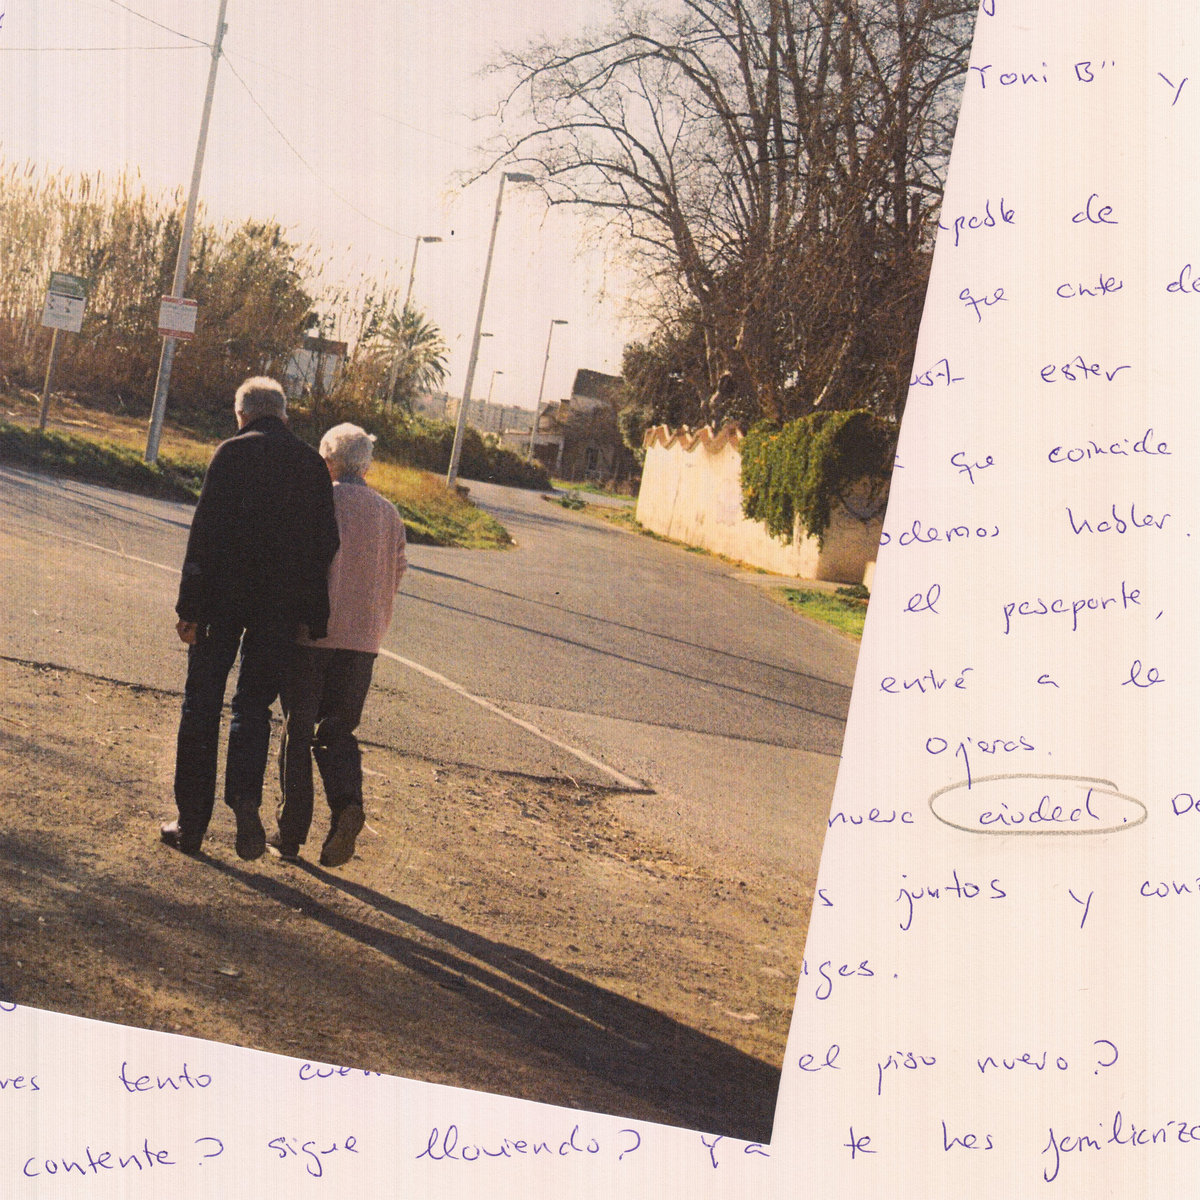 Toni B" y
de
que antes de
estar
que coincide
podemos hablar.
el pasaporte,
entré a la
Ojeras.
nueva ciudad. De
s juntos y con
el piso nuevo?
res tanto cuen
contenta? sigue lloviendo? Ya te has familiariza